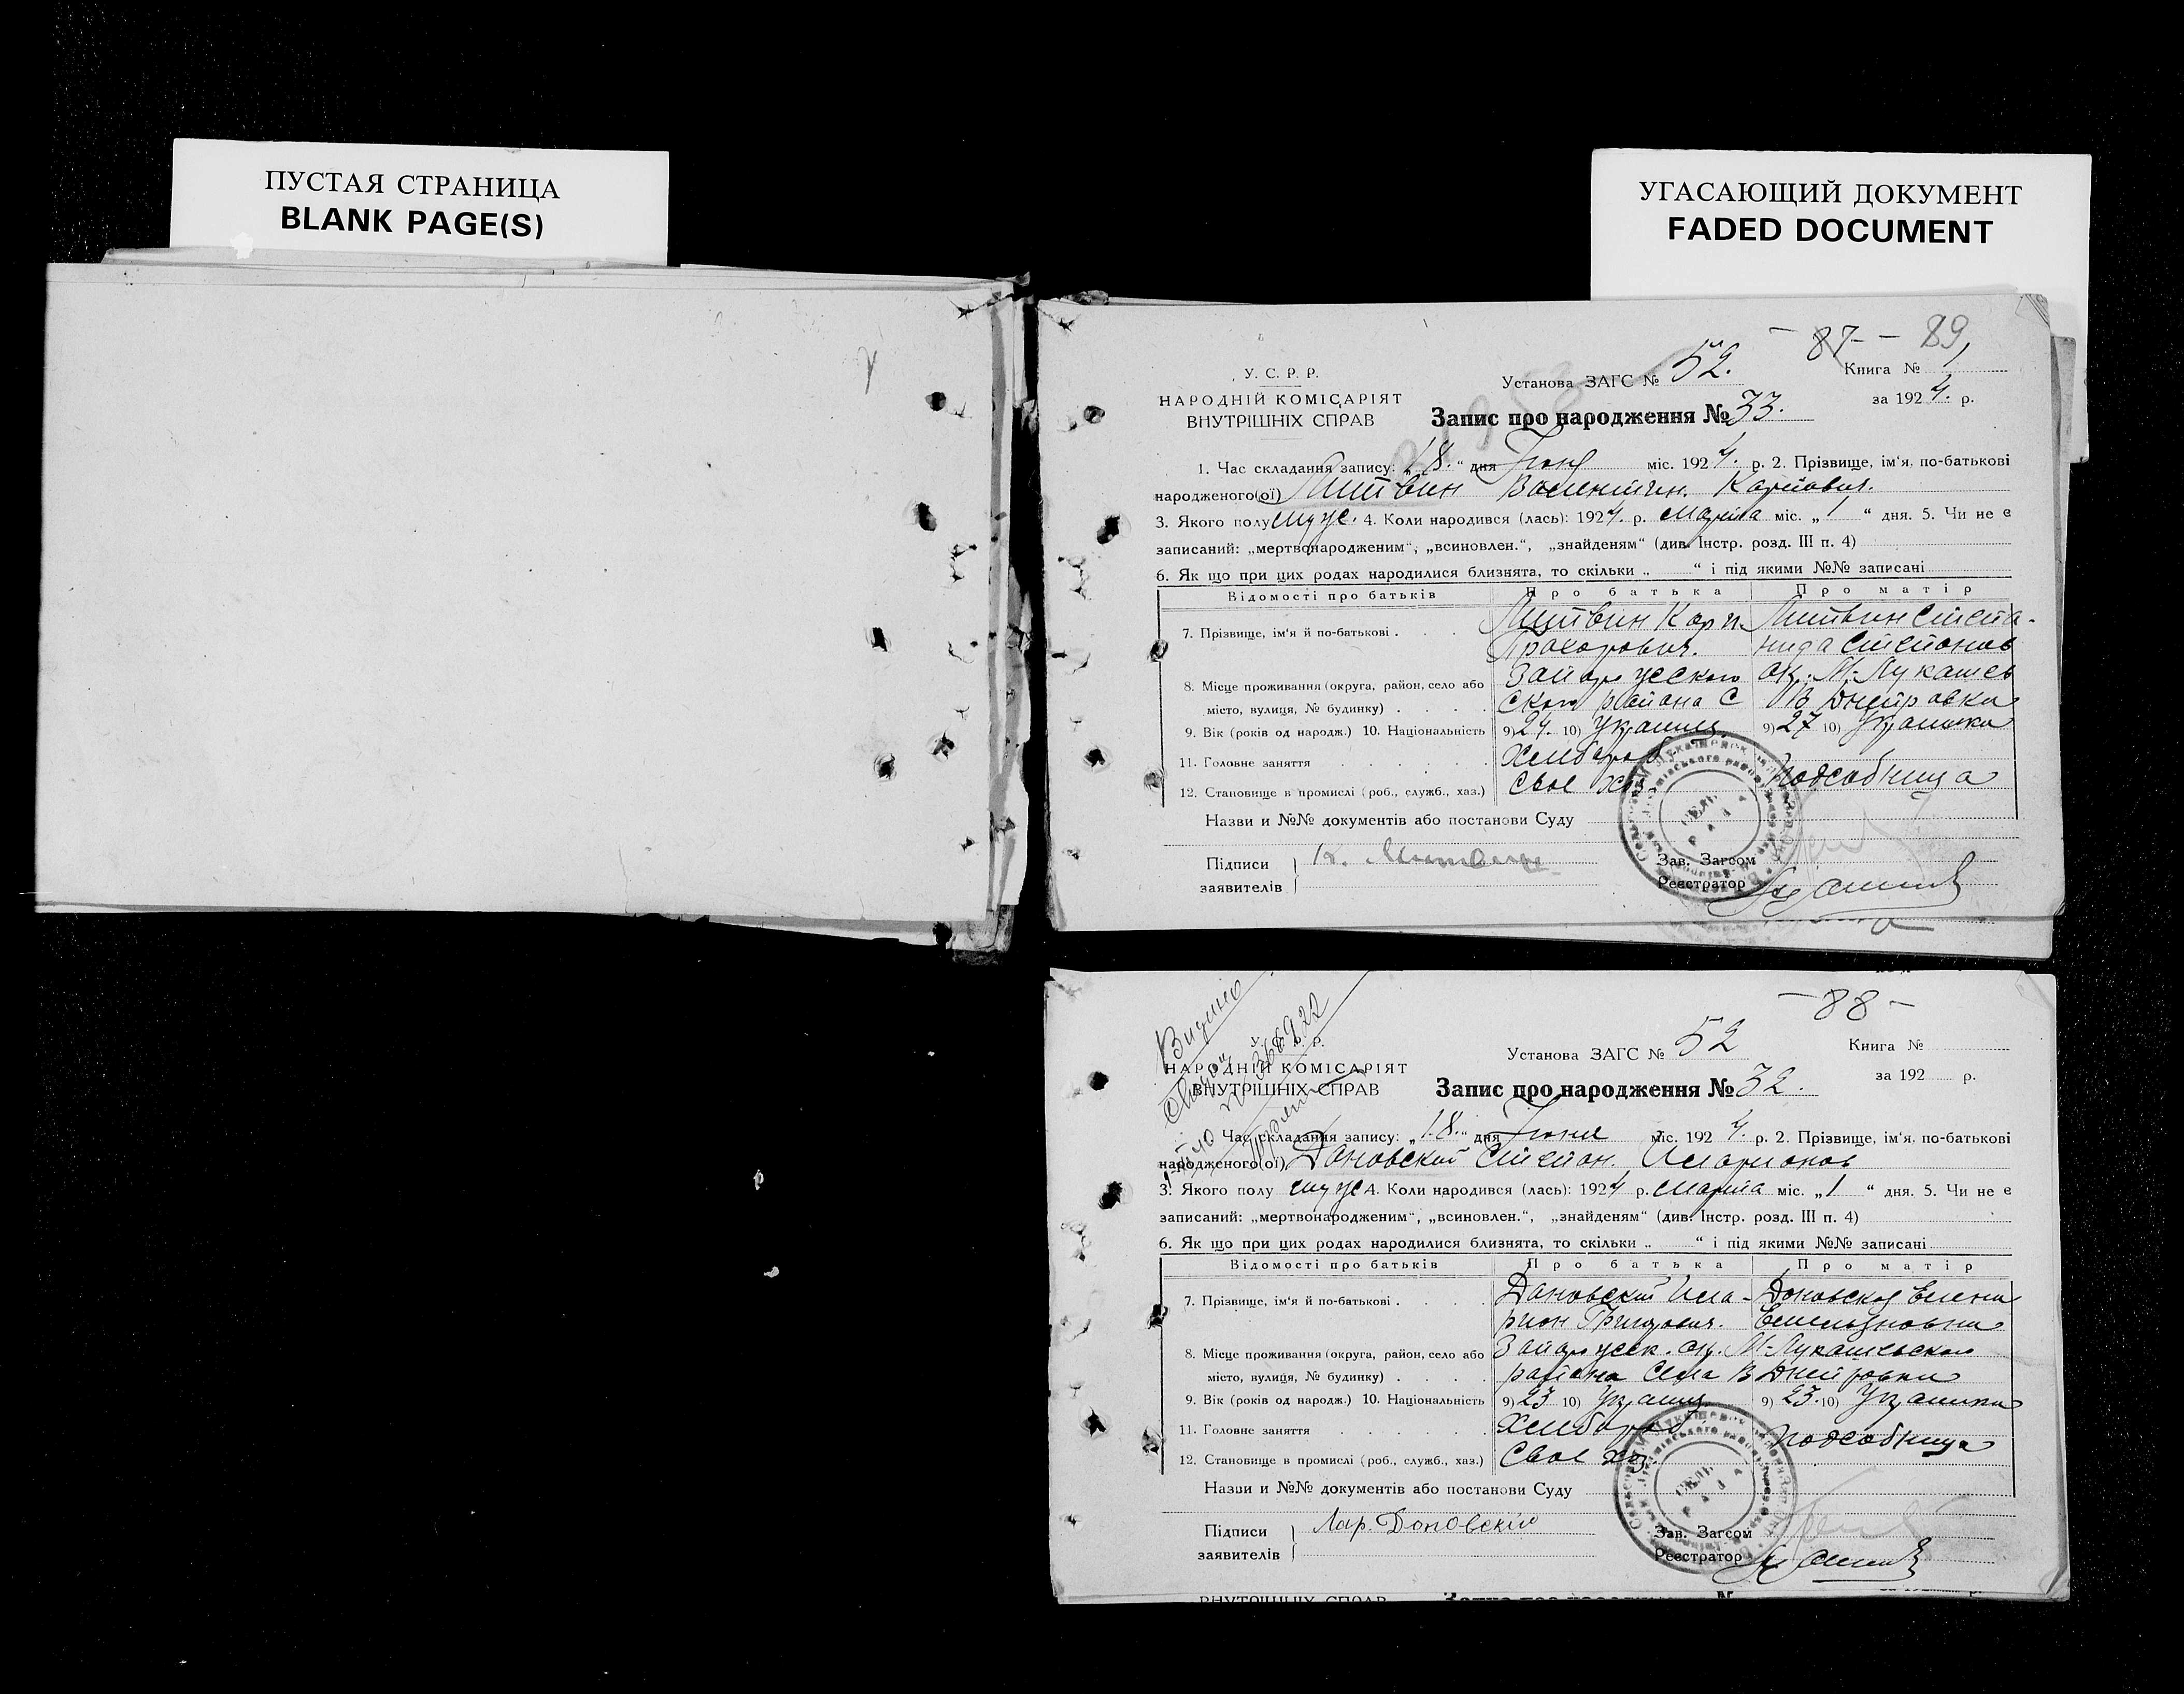 ПУСТАЯ СТРАНИЦА
BLANK PAGE(S)
УГАСАЮЩИЙ ДОКУМЕНТ
FADED DOCUMENT
- 87 - - 89
У. С. Р. Р.
НАРОДНІЙ КОМІСАРІЯТ
ВНУТРІШНІХ СПРАВ
Установа ЗАГС № 52.
Запис про народження № 33.
Книга № 1
за 1924. р.
1. Час складання запису: „18.“ дня Июня міс. 1924. р. 2. Прізвище, ім'я, по-батькові
народженого(ої) Литвин Валентин. Карпович.
3. Якого полу муж. 4. Коли народився (лась): 1924. р. марта міс. „1“ дня. 5. Чи не є
записаний: „мертвонародженим“, „всиновлен.“, „знайденям“ (див. Інстр. розд. III п. 4)
6. Як що при цих родах народилися близнята, то скільки „ “ і під якими №№ записані
Відомості про батьків Про батька Про матір
7. Прізвище, ім'я й по-батькові . . . Литвин Карп Литвин Степа-
Прохорович. нида Степанов
8. Місце проживання (округа, район, село або Запорожского ок. М-Лукашев
місто, вулиця, № будинку) . . . . ского района С В Днепровки
9. Вік (років од народж.) 10. Національність 9) 24. 10) Украинец. 9) 27 10) Украинка
11. Головне заняття . . . . . . Хлебороб
12. Становище в промислі (роб., служб., хаз.) Свое хоз. Подсобница
Назви и №№ документів або постанови Суду
Підписи К. Литвин
заявителів
Зав. Загсом
Реєстратор
- 88 -
Видано
№ 366922
У. С. Р. Р.
НАРОДНІЙ КОМІСАРІЯТ
ВНУТРІШНІХ СПРАВ
Установа ЗАГС № 52
Запис про народження № 32.
Книга №
за 192 р.
Час складання запису: „18.“ дня Июня міс. 1924. р. 2. Прізвище, ім'я, по-батькові
народженого(ої) Дановский Степан. Иларионов
3. Якого полу муж 4. Коли народився (лась): 1924 р. марта міс. „1“ дня. 5. Чи не є
записаний: „мертвонародженим“, „всиновлен.“, „знайденям“ (див. Інстр. розд. III п. 4)
6. Як що при цих родах народилися близнята, то скільки „ “ і під якими №№ записані
Відомості про батьків Про батька Про матір
7. Прізвище, ім'я й по-батькові . . . Дановский Ила- Дановская Елена
рион Григорович. Емельяновна
8. Місце проживання (округа, район, село або Запорожск. ок. М-Лукашевского
місто, вулиця, № будинку) . . . . района Села В Днепровки
9. Вік (років од народж.) 10. Національність 9) 23 10) Украинец. 9) 23. 10) Украинка
11. Головне заняття . . . . . . Хлебороб
12. Становище в промислі (роб., служб., хаз.) Свое хоз. Подсобница
Назви и №№ документів або постанови Суду
Підписи Лар. Доновский
заявителів
Зав. Загсом
Реєстратор
ВНУТРІШНІХ СПРАВ Запис про народження №